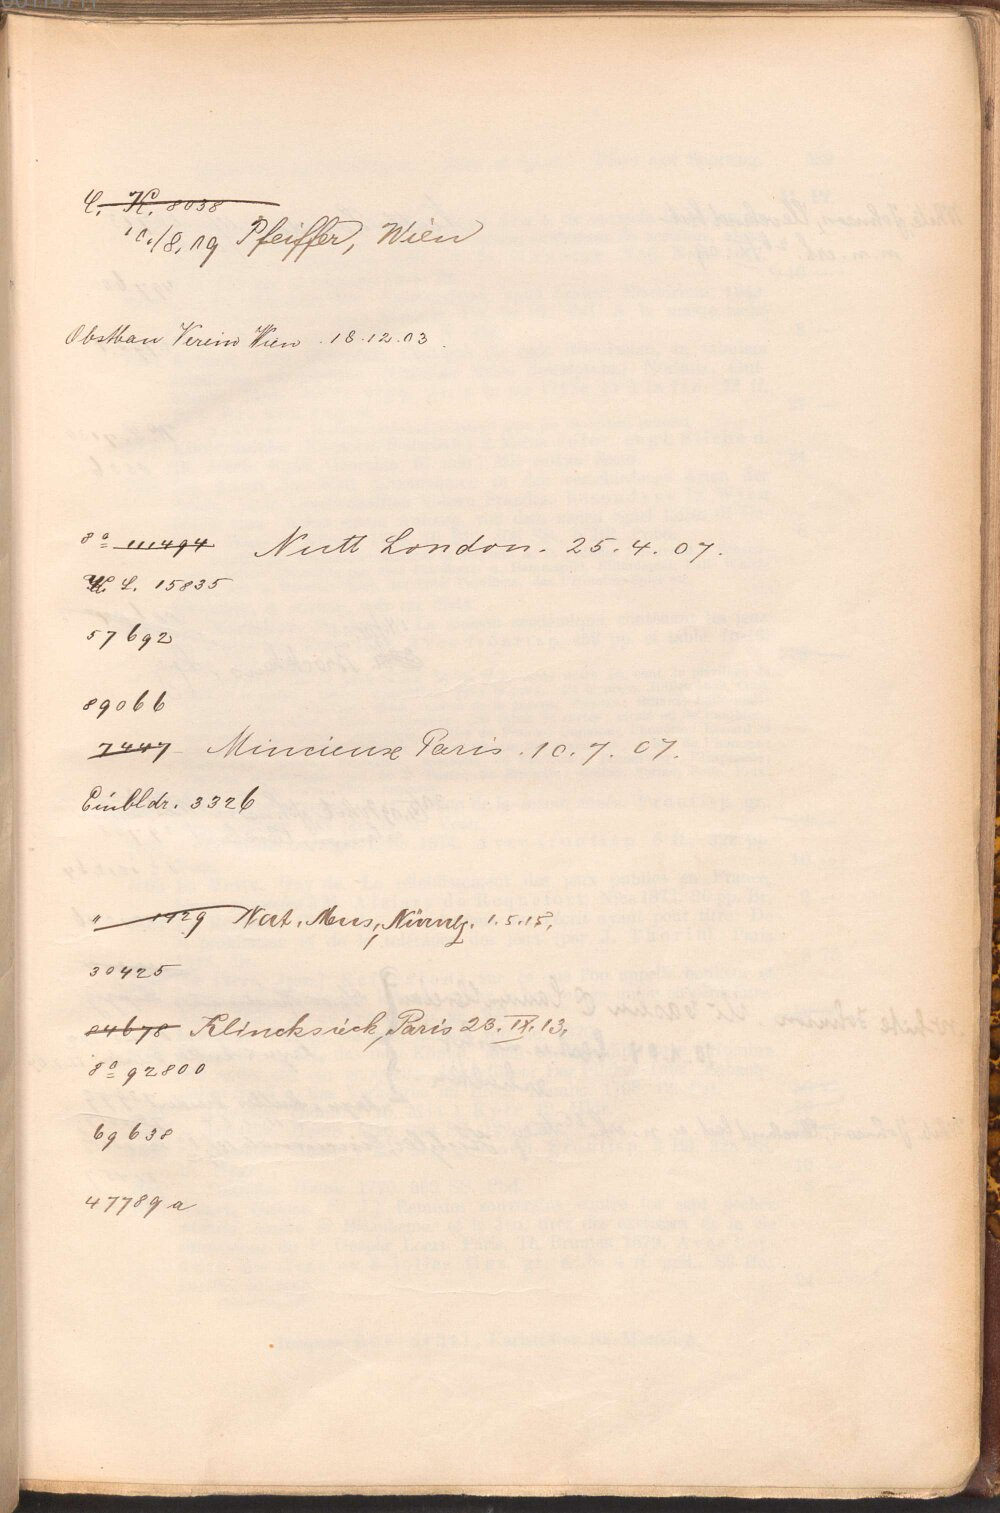 L. K. 8038
10./8. 19 Pfeiffer, Wien
Obstbau Verein Wien . 18.12.03.
8º 111494 Nutt London. 25.4.07.
K. L. 15835
57692
89066
7447 Mincieux Paris . 10.7.07.
Einbldr. 3326
" 1729 Nat. Mus, Nürnbg. 1.5.15.
30425
84678 Klincksieck, Paris 23. IX. 13.
8º 92800
69638
47789 a